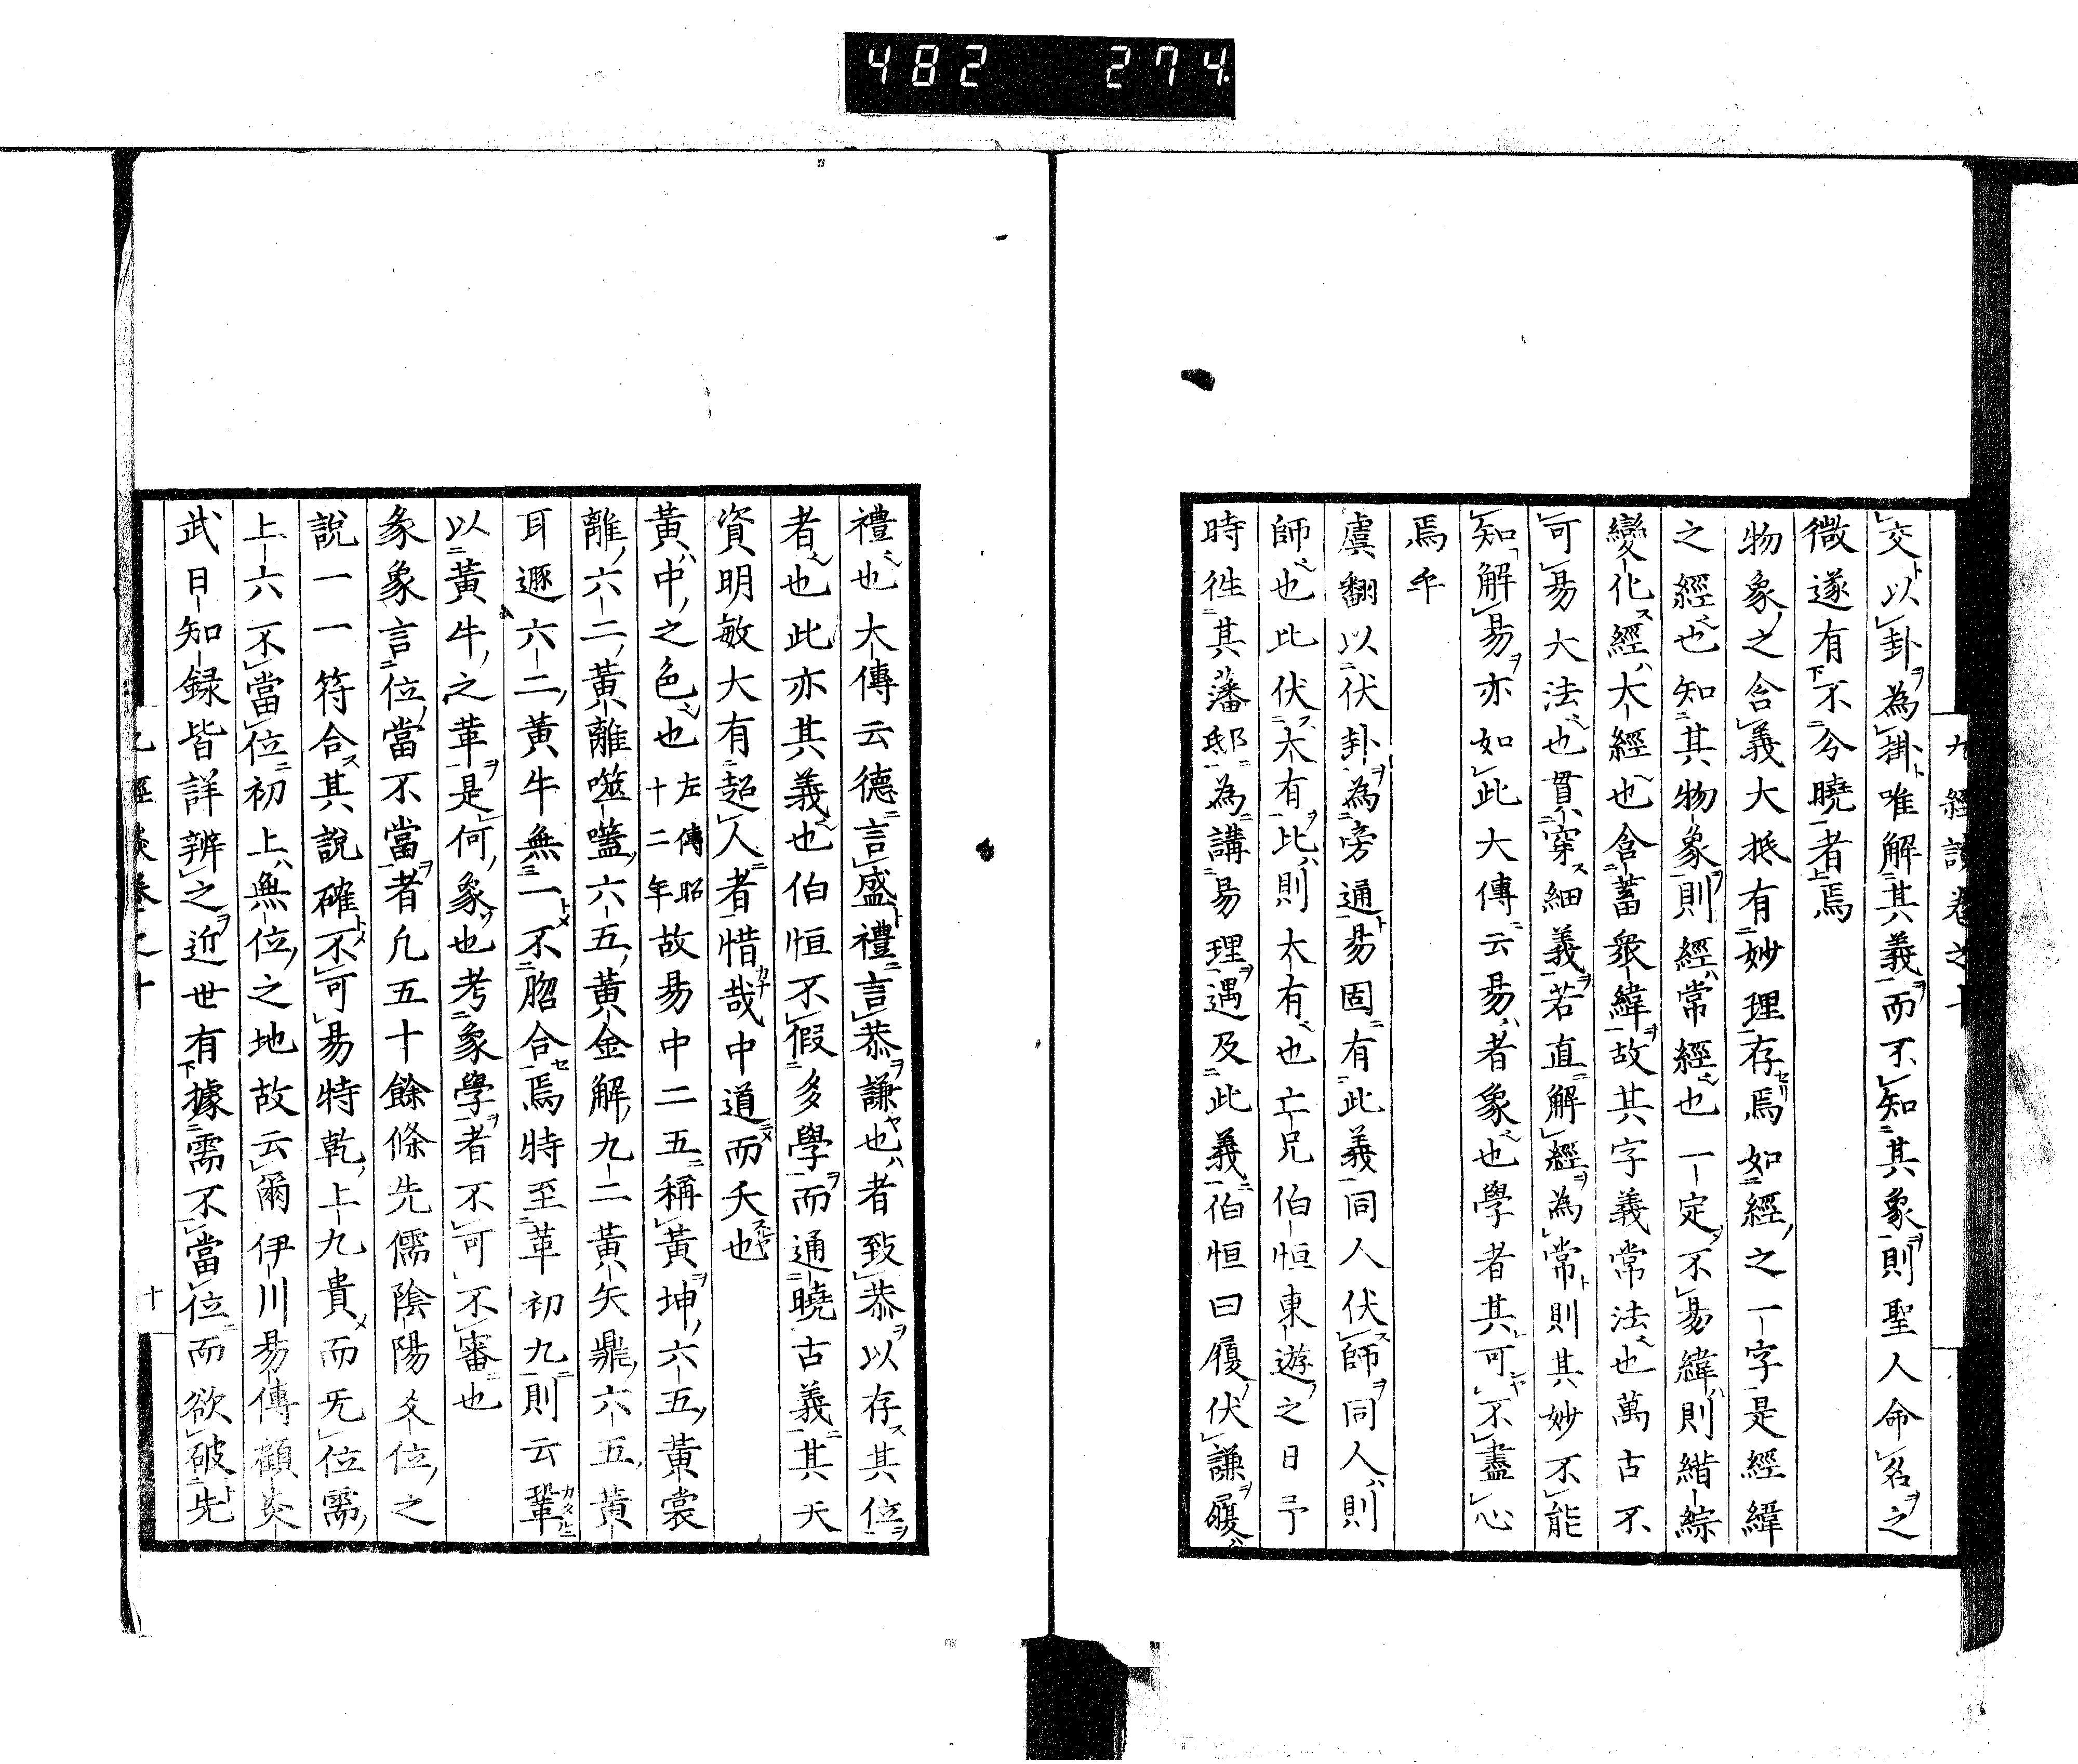 482 274
九經談卷之十
交以卦為掛唯解其義而不知其象則聖人命名之
微遂有不分曉者焉
物象之含義大抵有妙理存焉如經之一字是經緯
之經也知其物象則經常經也一定不易緯則緒綜
變化經大經也含蓄衆緯故其字義常法也萬古不
可易大法也貫穿細義若直解經為常則其妙不能
知解易亦如此大傳云易者象也學者其可不盡心
焉乎
虞翻以伏卦為旁通易固有此義同人伏師同人則
師也比伏大有比則大有也亡兄伯恒東遊之日予
時徃其藩邸為講易理遇及此義伯恒曰履伏謙履
禮也大傳云德言盛禮言恭謙也者致恭以存其位
者也此亦其義也伯恒不假多學而通曉古義其天
資明敏大有超人者惜哉中道而夭也
黃中之色也左傳昭十二年故易中二五稱黃坤六五黃裳
離六二黃離噬嗑六五黃金解九二黃矢鼎六五黃
耳遯六二黃牛無一不脗合焉特至革初九則云鞏
以黃牛之革是何象也考象學者不可不審也
彖象言位當不當者凡五十餘條先儒陰陽爻位之
說一一符合其說確不可易特乾上九貴而无位需
上六不當位初上無位之地故云爾伊川易傳顧炎
武日知録皆詳辨之近世有據需不當位而欲破先
九經談卷之十
十